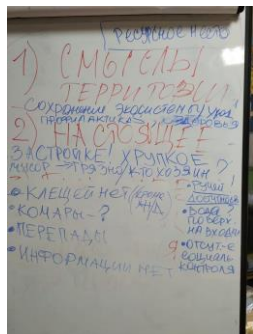 РЕСУРСНОЕ МЕСТО
1) СМЫСЛЫ
ТЕРРИТОРИИ
Сохранение экосистемы
ПРОФИЛАКТИКА ЗДОРОВЬЯ
2) НАСТОЯЩЕЕ -
ЗАСТРОЙКЕ! ХРУПКОЕ
МУСОР → ГРЯЗНО/КТО ХОЗЯИН?
• КЛЕЩЕЙ НЕТ
• КОМАРЫ - ?
• ПЕРЕПАДЫ
• ИНФОРМАЦИИ НЕТ
• РУЧЕЙ
• ВОДА
ПОВЕРХ.
НА ВХОДЕ
• ОТСУТ-Е
СОЦИАЛЬ
КОНТРОЛЯ